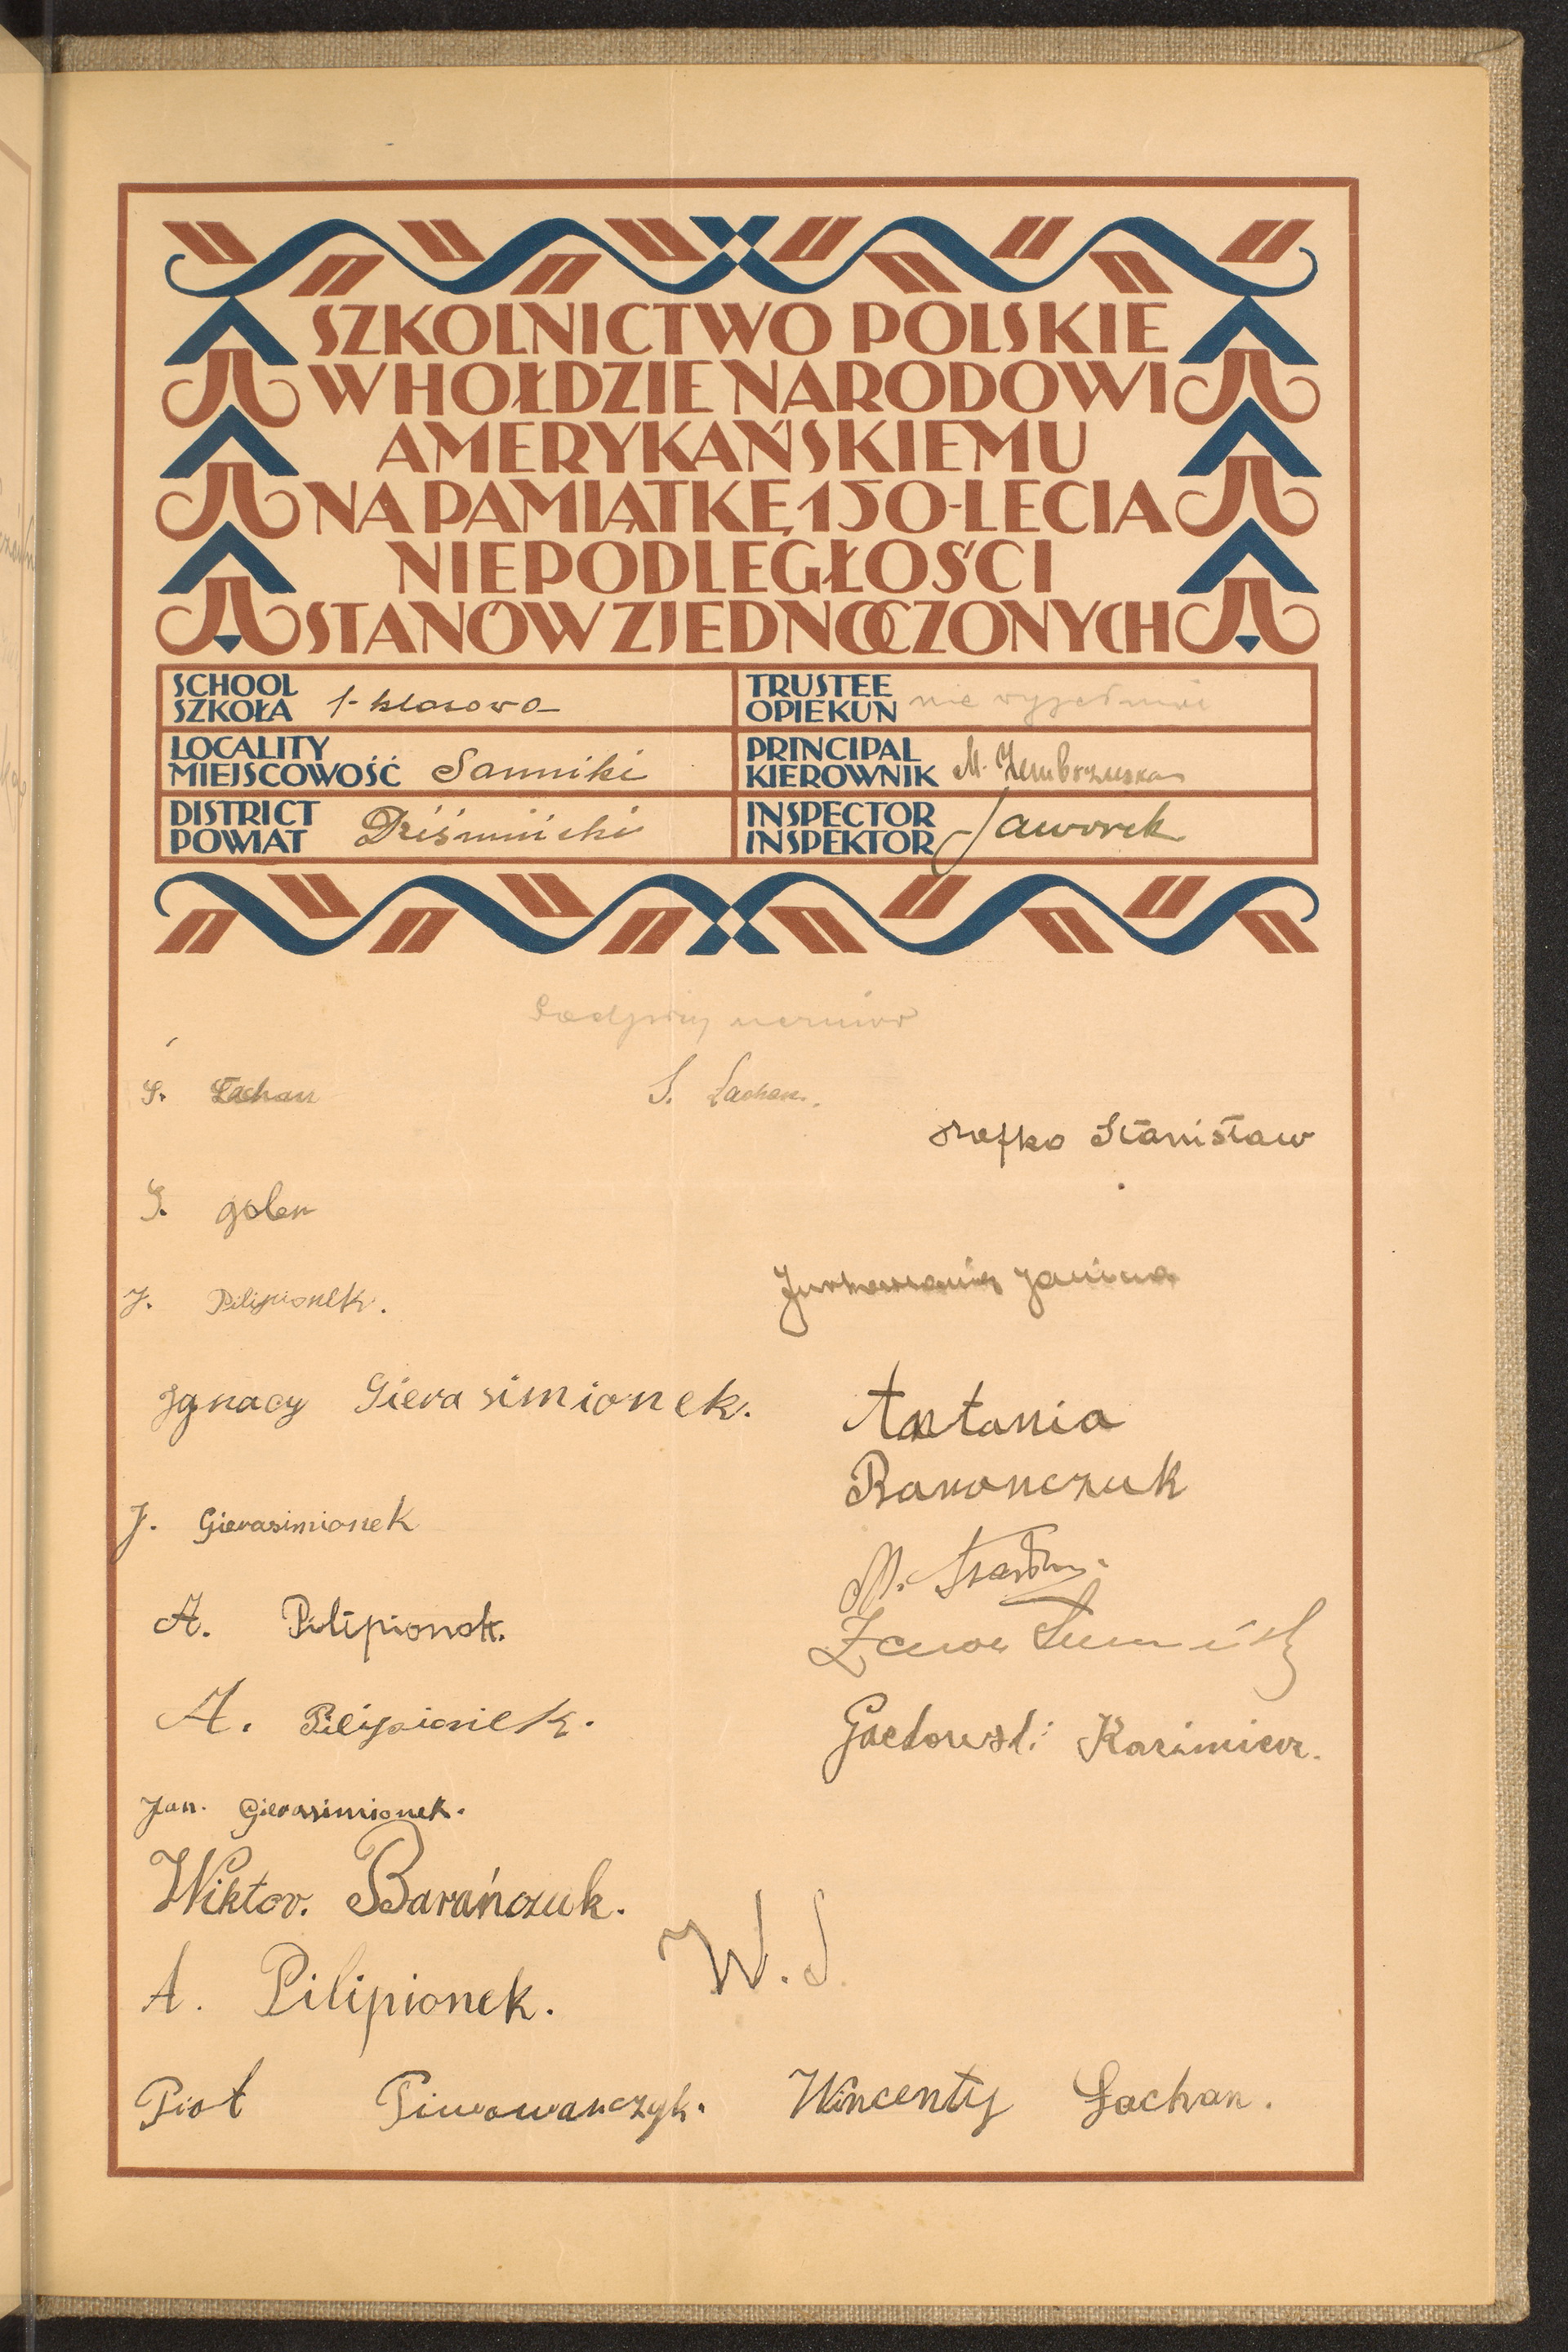 SZKOLNICTWO POLSKIE
W HOŁDZIE NARODOWI
AMERYKAŃSKIEMU
NA PAMIĄTKĘ 150-LECIA
NIEPODLEGŁOŚCI
STANÓW ZJEDNOCZONYCH
SCHOOL
SZKOŁA 1-klasowa
TRUSTEE
OPIEKUN nie
LOCALITY
MIEJSCOWOŚĆ Sanniki
PRINCIPAL
KIEROWNIK M. Zembrzuska
DISTRICT
POWIAT Dziśnieński
INSPECTOR
INSPEKTOR Jaworek
S. Łachan
S. Łachan.
Stanisław
S. golen
J. Pilipionek.
Janina
Ignacy Gierasimionek.
Antonia
Baronczuk
J. Gierasimionek
M.
A. Pilipionek.
A. Pilipionek.
Kazimierz.
Jan. Gierasimionek.
Wiktor. Barańczuk.
W. S.
A. Pilipionek.
Piot Piwowarczyk.
Wincenty Łachan.